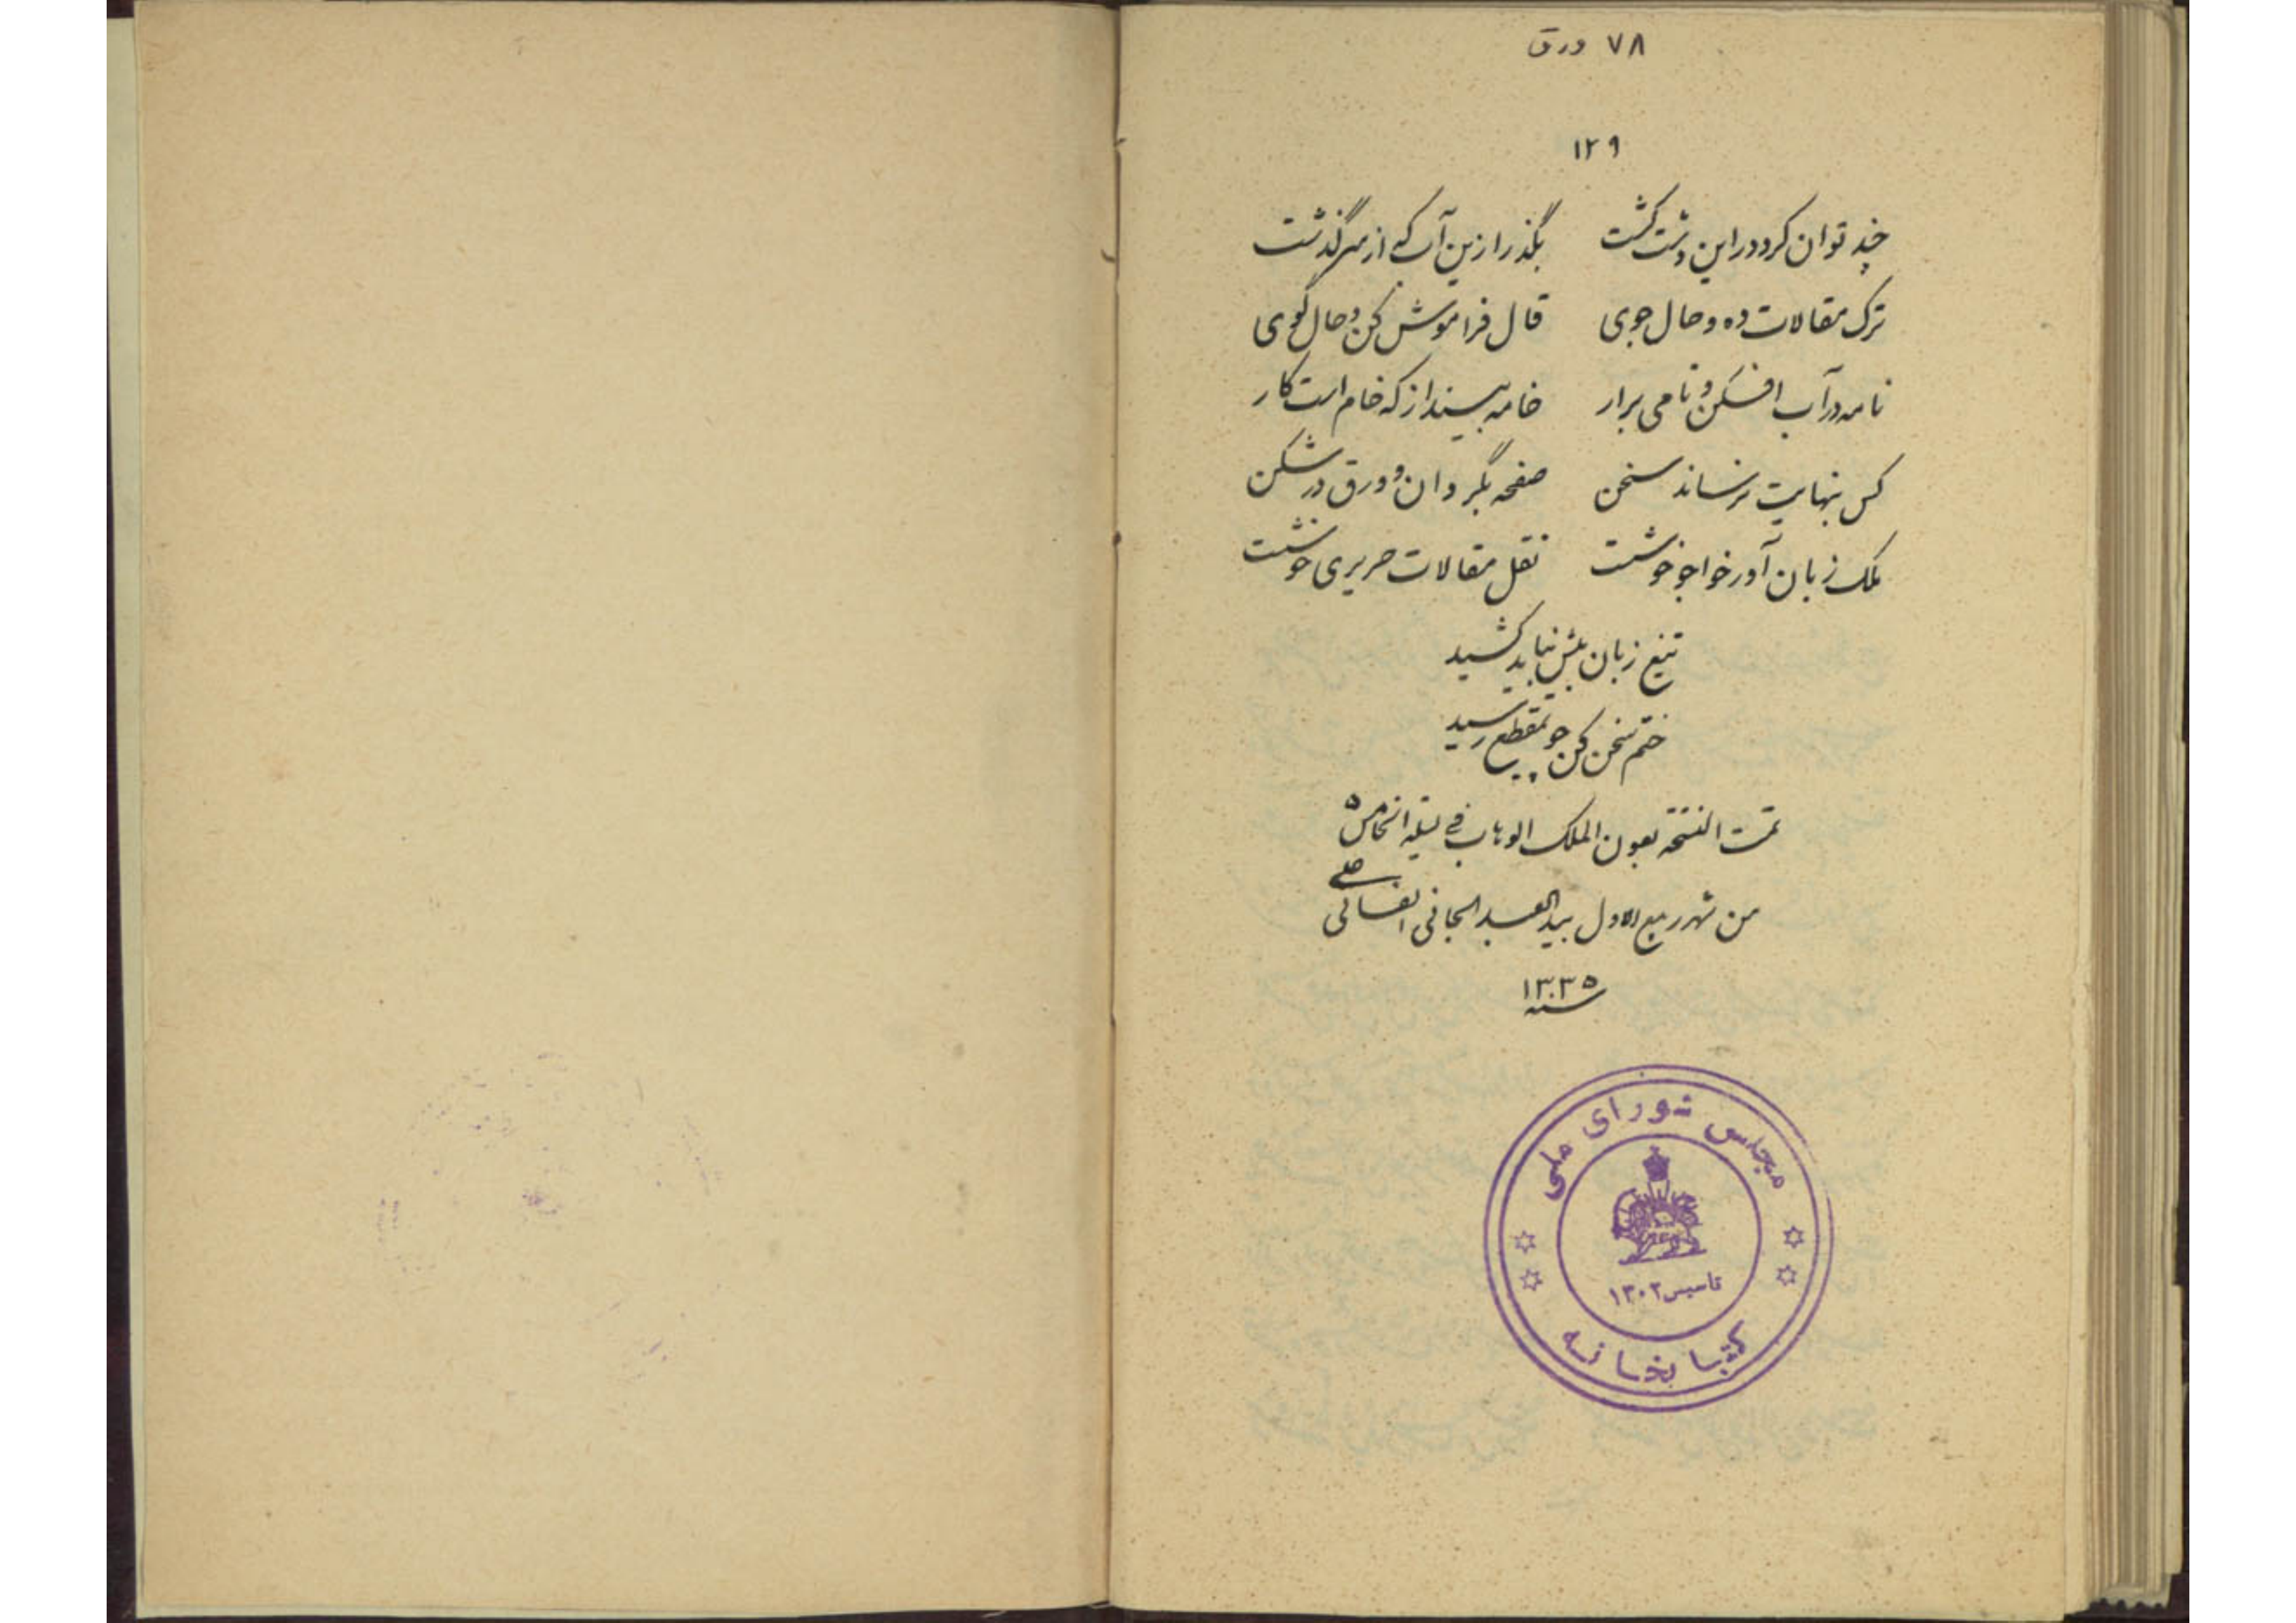 ۷۸ ورق
۱۲۹
چند توان کرد در این دشت گشت بگذر ازین آب که از سر گذشت
ترک مقالات ده و حال جوی قال فراموش کن و حال گوی
نامه در آب افکن و نامی برار خامه بینداز که خام است کار
کس بنهایت نرساند سخن صفحه بگردان و ورق در شکن
کلک زبان آور خواجو خوشست نقل مقالات حریری خوشست
تیغ زبان بیش نباید کشید
ختم سخن کن چو بمقطع رسید
تمت النسخه بعون الملک الوهاب فی لیله الخامس ۵
من شهر ربیع الاول بید العبد الجانی
سنه ۱۳۳۵
مجلس شورای ملی
تاسیس ۱۳۰۲
کتابخانه